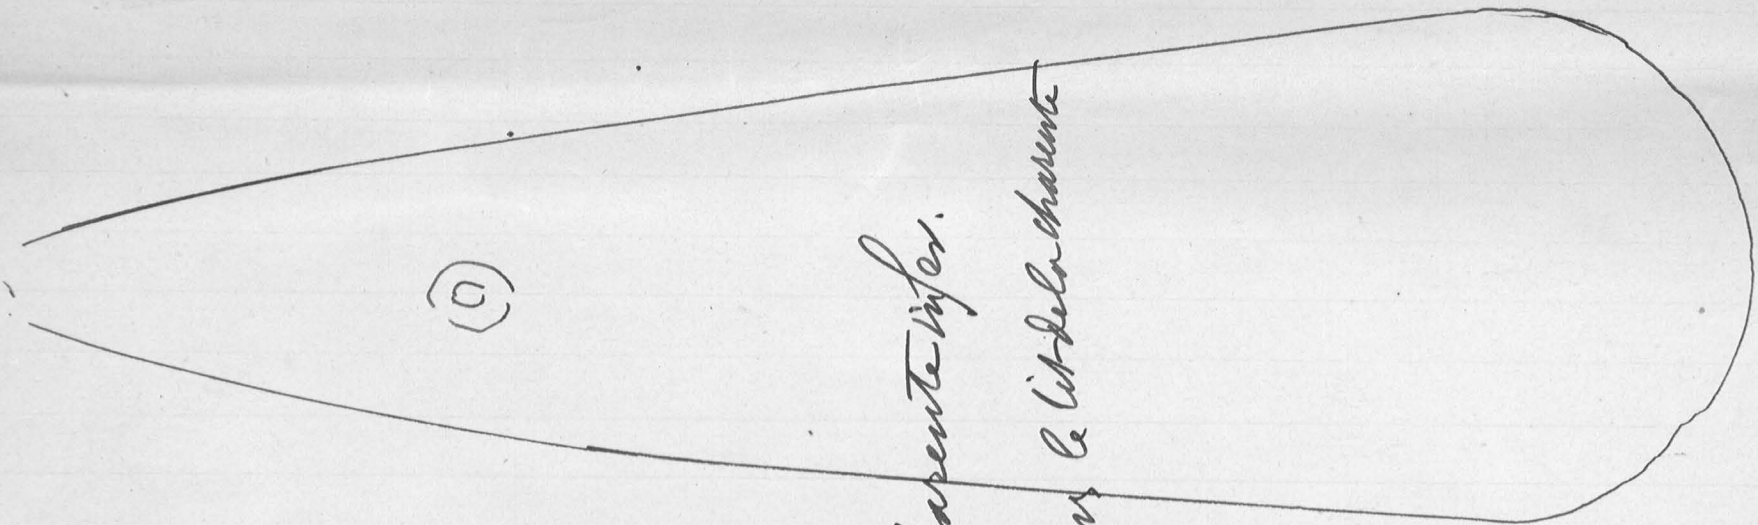 arente infer.
le lit de la charente